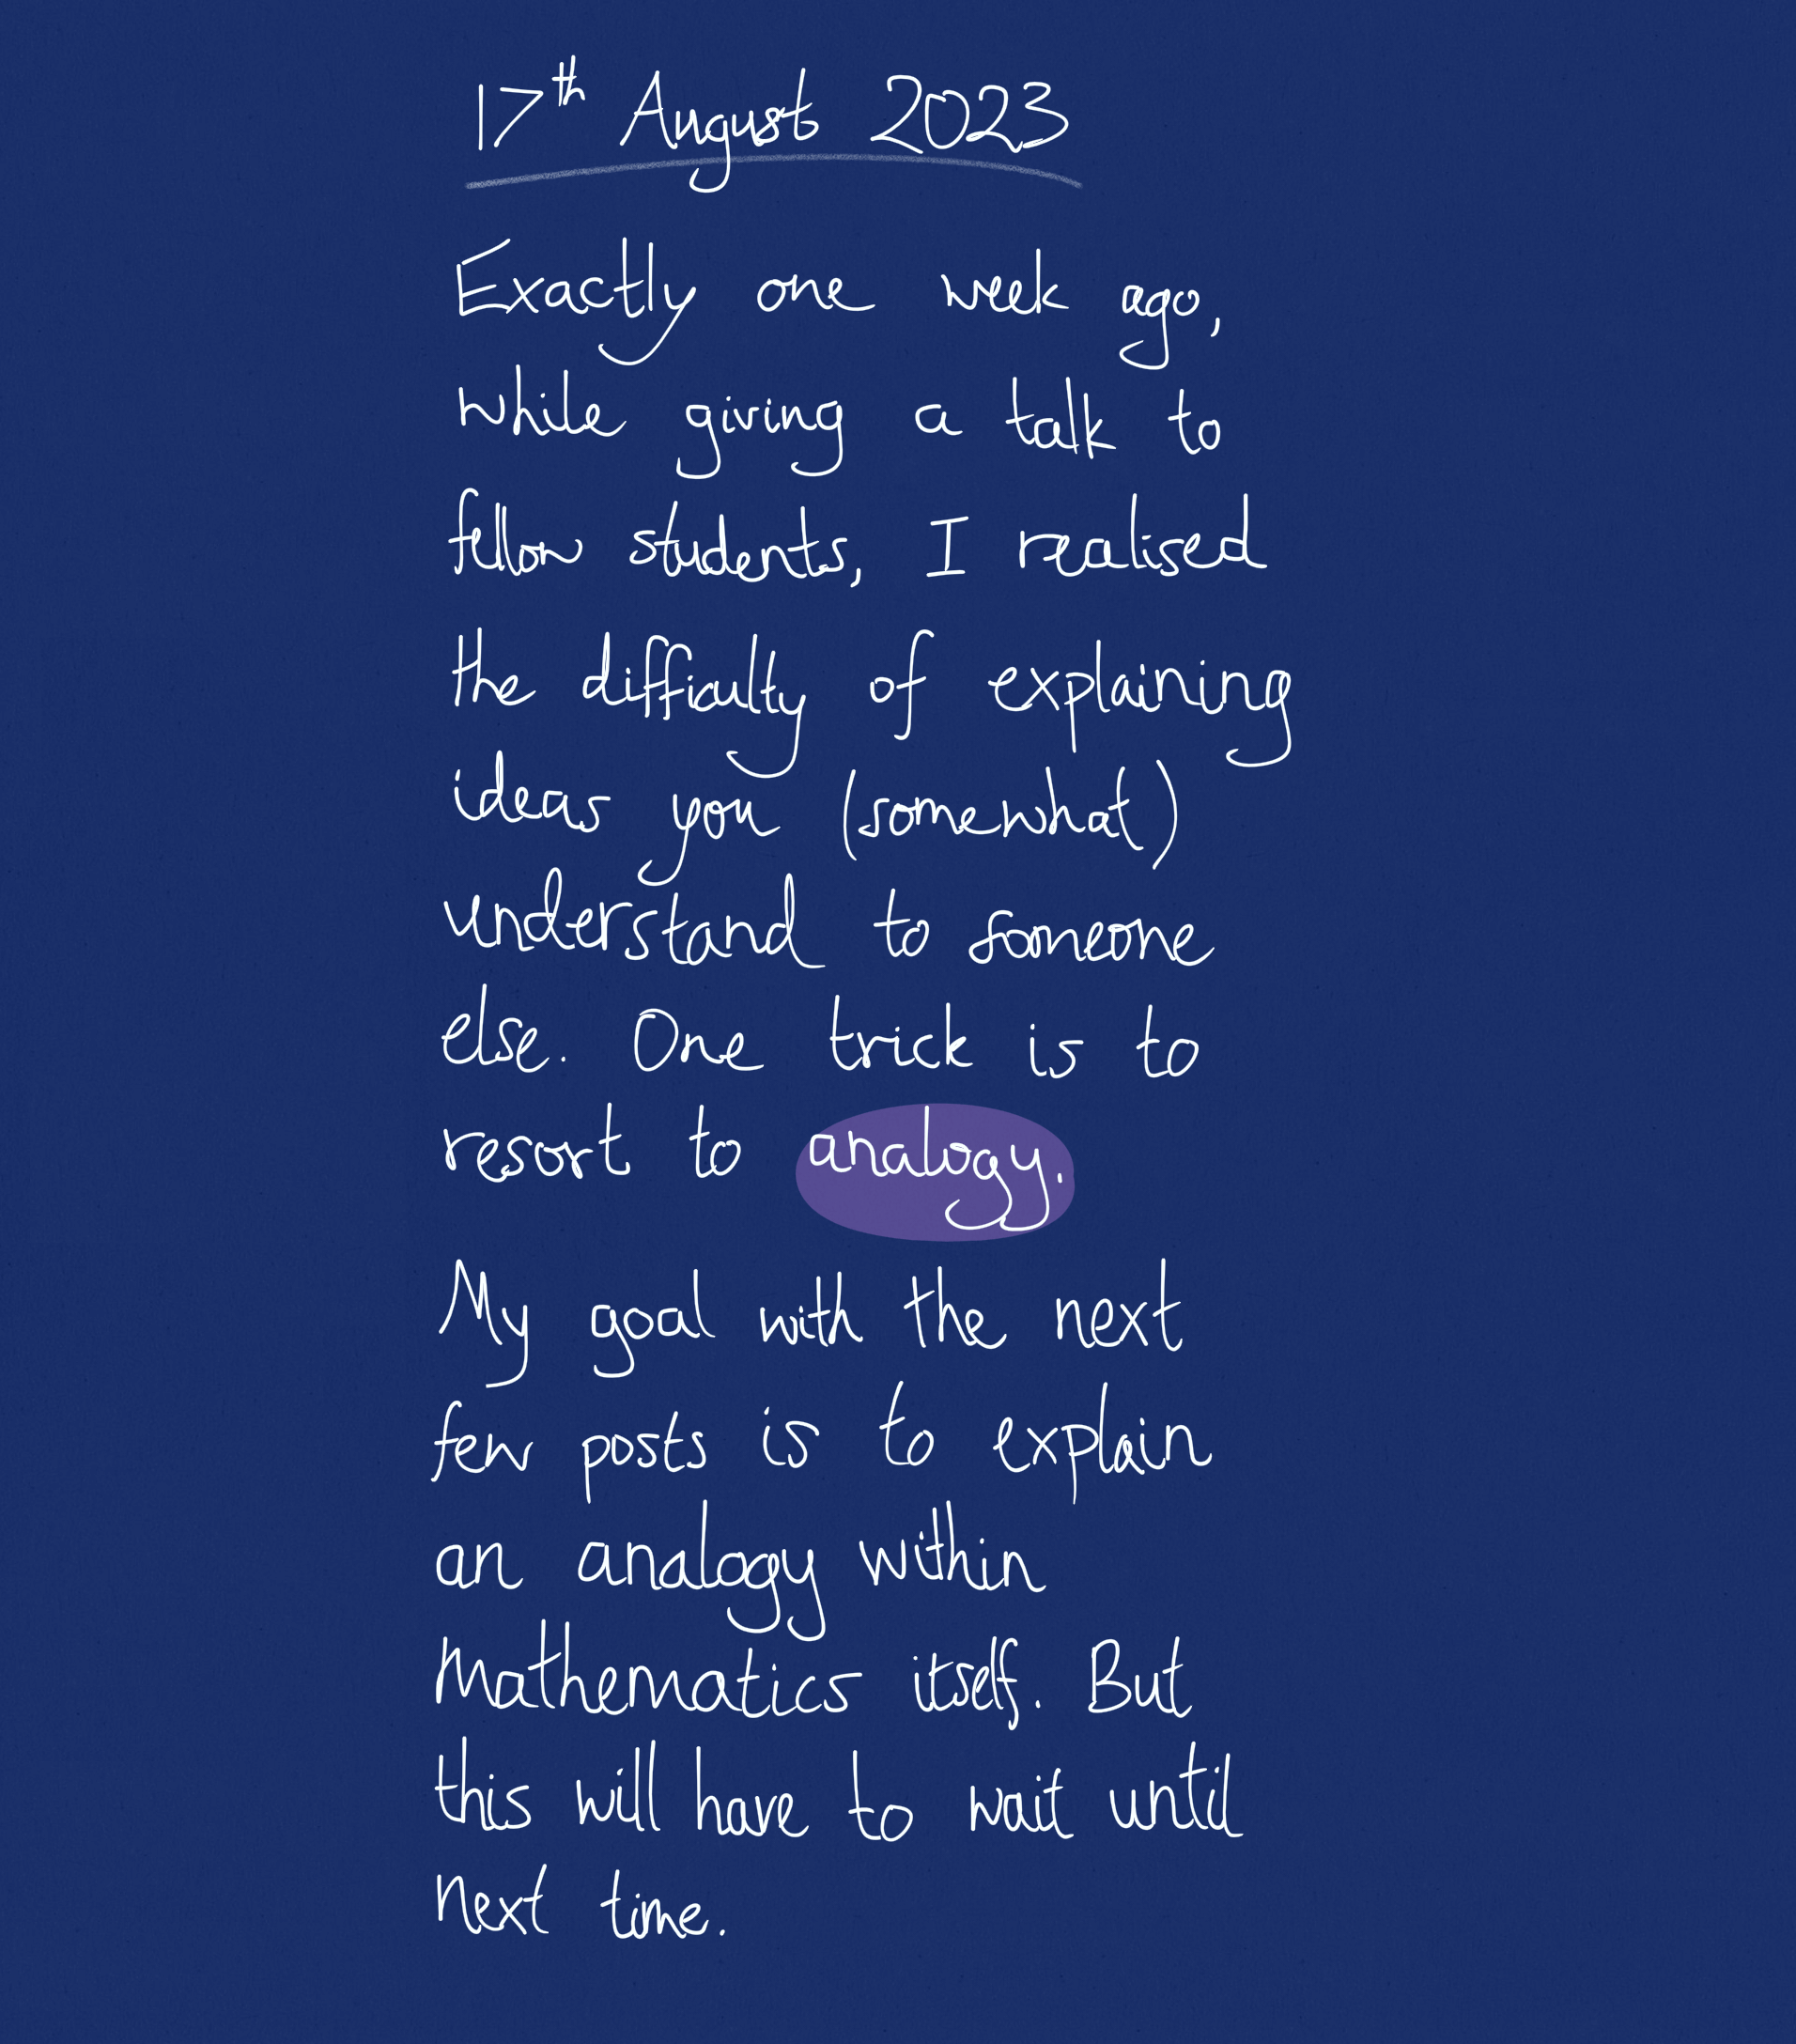 17th August 2023
Exactly one week ago,
while giving a talk to
fellow students, I realised
the difficulty of explaining
ideas you (somewhat)
understand to someone
else. One trick is to
resort to analogy.
My goal with the next
few posts is to explain
an analogy within
Mathematics itself. But
this will have to wait until
next time.